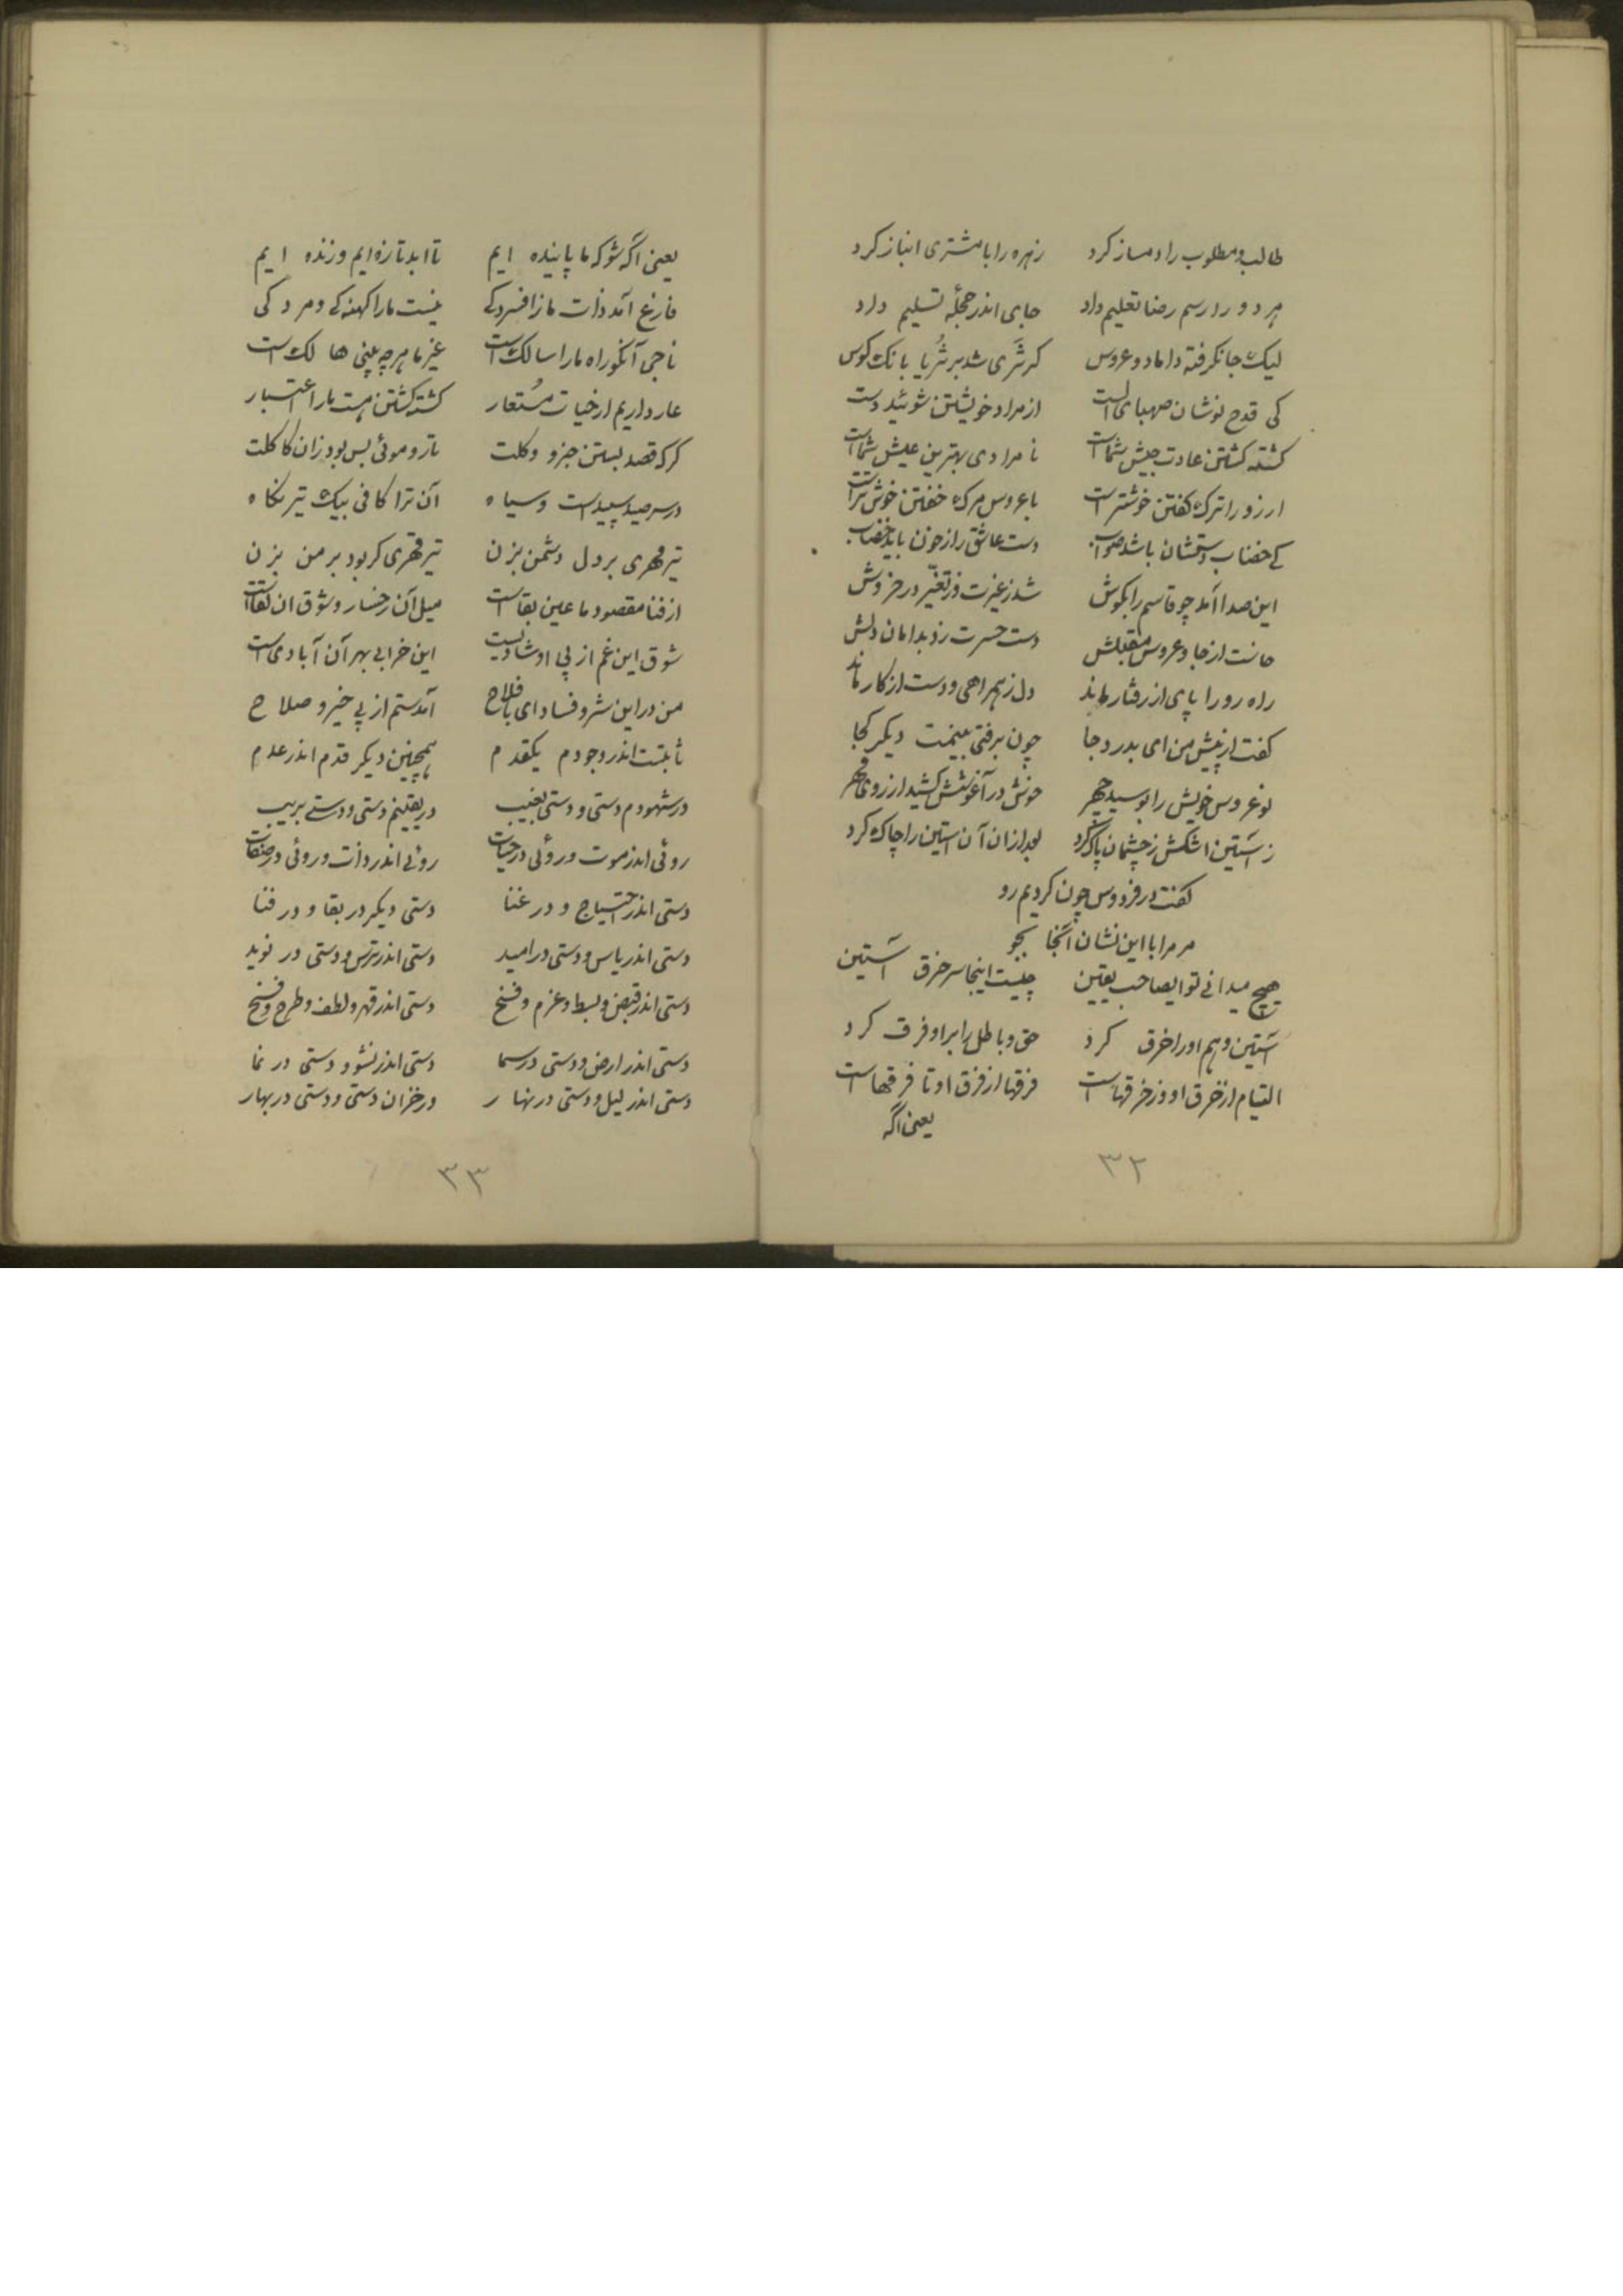 طالب و مطلوب را دمساز کرد زهره را با مشتری انباز کرد
هر دو را رسم رضا تعلیم داد جای اندر حجلهٔ تسلیم داد
لیک جا نگرفته داماد و عروس کز ثَری شد بر ثُریا بانک کوس
کی قدح نوشان صهبای الست از مراد خویشتن شوئید دست
کشته کشتن عادت جیش شماست نامرادی بهترین عیش شماست
ارزو را ترک کفتن خوشتر است با عروس مرک خفتن خوش تر است
کی خضاب دستشان باشد صواب دست عاشق را ز خون باید خضاب
این صدا آمد چو قاسم را بکوش شد ز غیرت وز تغیّر در خروش
خاست از جا و عروس مقبلش دست حسرت زد بدامان دلش
راه رو را پای از رفتار ماند دل ز همراهی و دست از کار ماند
کفت از پیش من ای بدر دجا چون برفتی بینمت دیکر کجا
نو عروس خویش را بوسید چهر خوش در آغوشش کشید از روی مهر
ز آستین اشکش ز چشمان پاک کرد بعد از ان آن استین را چاک کرد
کفت در فردوس چون کردیم رو
مر مرا با این نشان آنجا بجو
هیچ میدانی تو ایصاحب یقین چیست اینجا سر خرق آستین
آستین وهم او را خرق کرد حق و باطل را بر او فرق کرد
التیام از خرق او وز خرقهاست فرقها از فرق او تا فرقهاست
یعنی آکه
۳۲
یعنی آکه شو که ما پاینده ایم تا ابد تازه ایم و زنده ایم
فارغ آمد ذات ما ز افسردکی نیست ما را کهنه کی و مردکی
ناجی آنکو راه ما را سالک است غیر ما هر چه بینی هالک است
عار داریم از حیات مُستعار کشته کشتن هست ما را اعتبار
کر که قصد بستن جزو و کلت تار و موئی بس بود زان کاکلت
در سر صید سپید است و سیاه آن ترا کافی بیک تیر نکاه
تیر قهری بر دل دشمن بزن تیر قهری کر بود بر من بزن
از فنا مقصود ما عین بقاست میل آن رخسار و شوق ان لقاست
شوق این غم از پی او شادیست این خرابی بهر آن آبادی است
من در این شر و فساد ای با فلاح آمدستم از پی خیر و صلاح
ثابتست اندر وجودم یکقدم همچنین دیکر قدم اندر عدم
در شهودم دستی و دستی بغیب در یقینم دستی و دستی بریب
روئی اندر موت و روئی در حیات روئی اندر ذات و روئی در صفات
دستی اندر احتیاج و در غنا دستی دیکر در بقا و در فنا
دستی اندر یاس و دستی در امید دستی اندر ترس و دستی در نوید
دستی اندر قبض و بسط و عزم و فسخ دستی اندر قهر و لطف و طرح و نسخ
دستی اندر ارض و دستی در سما دستی اندر نشو و دستی در نما
دستی اندر لیل و دستی در نهار در خزان دستی و دستی در بهار
۳۳